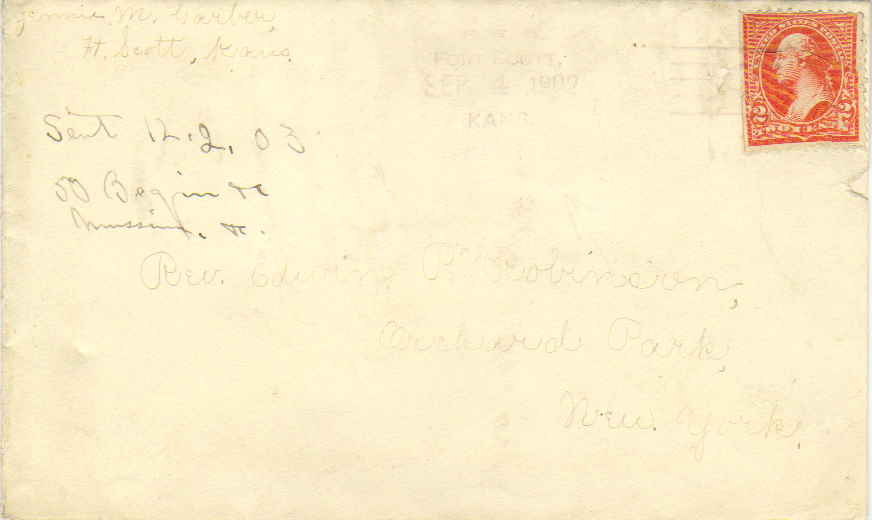 Jennie M. Garber,
Ft. Scott, Kans.
FORT SCOTT,
SEP 4
KANS.
UNITED STATES POSTAGE
2 2
TWO CENTS
Sent 12.2.03
50 Begin &c
Rev. Edwin P. Robinson,
Orchard Park,
New York.